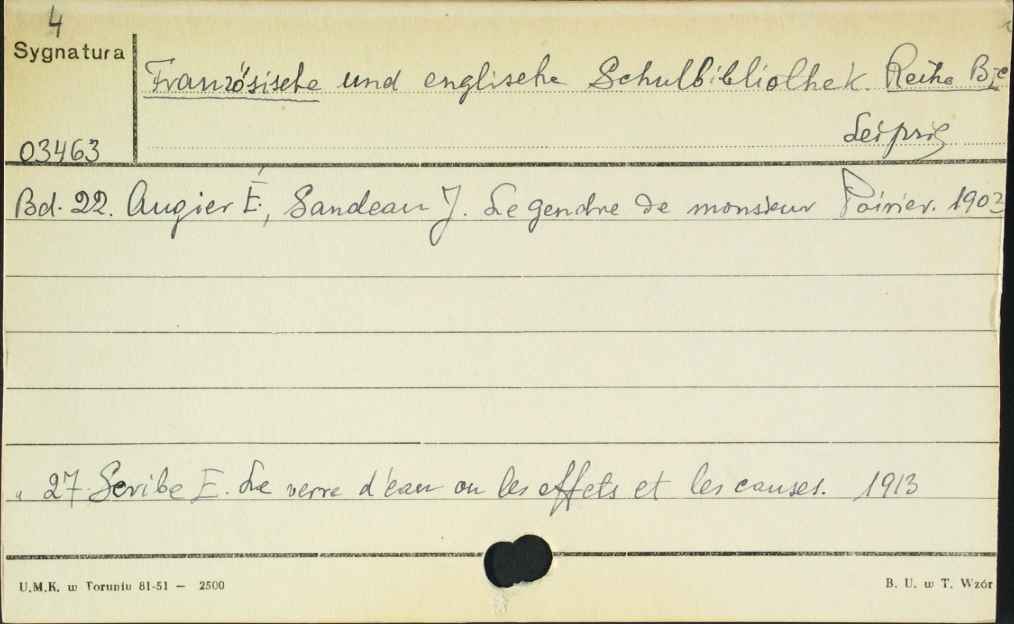 4
Sygnatura
Französische und englische Schulbibliothek. Reihe B;
Leipzig
03463
Bd. 22. Augier É., Sandeau J. Le gendre de monsieur Poirier. 1902
" 27 Scribe E. Le verre d'eau ou les effets et les causes. 1913
U.M.K. w Toruniu 81-51 — 2500
B. U. w T. Wzór